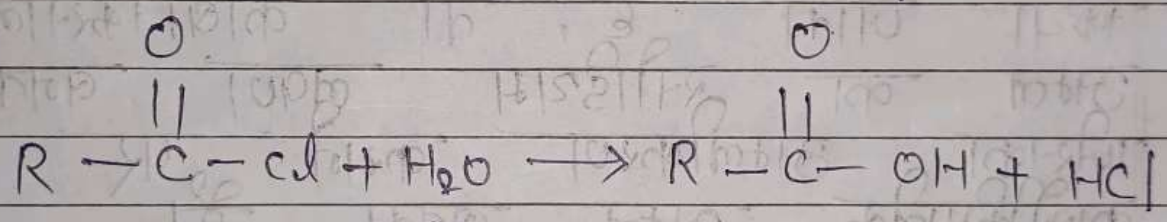 O O
|| ||
R — C — Cl + H₂O ⟶ R — C — OH + HCl